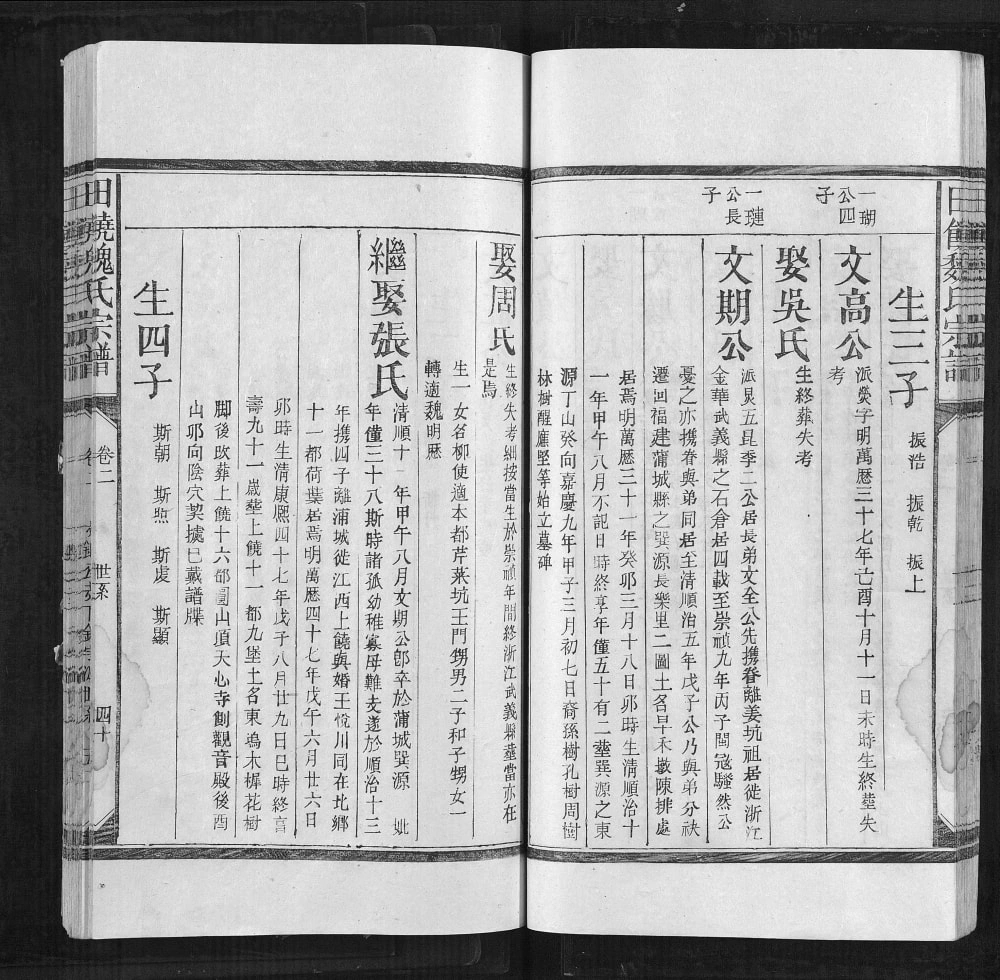 生三子 振浩 振乾 振上
一瑚公四子
文高公 派㷼字明萬曆三十七年亡酉十月十一日木時生終塟失
考
娶吳氏 生終葬失考
一璉公長子
文期公 派炅五昆季二公居長弟文全公先携眷離姜坑祖居徙浙江
金華武義縣之石倉居四載至崇禎九年丙子閩冦騷然公
憂之亦携眷與弟同居至清順治五年戊子公乃與弟分袂
遷回福建蒲城縣之㢲源長樂里二圖土名早禾墩陳排處
居焉明萬曆三十一年癸卯三月十八日卯時生清順治十
一年甲午八月不記日時終享年僅五十有二塟㢲源之東
源丁山癸向嘉慶九年甲子三月初七日裔孫樹孔樹周樹
林樹醒應堅等始立墓碑
娶周氏 生終失考細按當生於崇禎年間終浙江武義縣塟當亦在
是焉
生一女名柳使適本都芹菜坑王門甥男二子和子甥女一
轉適魏明歷
繼娶張氏 清順十 年甲午八月文期公卽卒於蒲城㢲源 妣
年僅三十八斯時諸狐幼稚寡母難支遂於順治十三
年携四子離浦城徙江西上饒與婚王悅川同在北鄉
十一都荷葉居焉明萬曆四十七年戊午六月廿六日
卯時生清康熙四十七年戊子八月廿九日巳時終享
壽九十一嵗塟上饒十一都九堡土名東塢木樨花樹
脚後改葬上饒十六都圓山頂天心寺創觀音殿後酉
山卯向陰穴契據已載譜牒
生四子 斯朝 斯煦 斯虔 斯顯
田饒魏氏宗譜
卷二
世系
四十